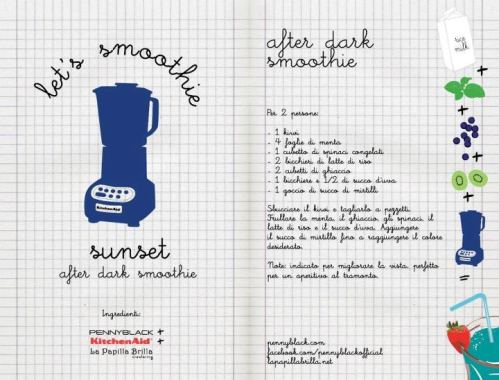 let's smoothie
KitchenAid
sunset
after dark smoothie
Ingredienti:
PENNYBLACK +
KitchenAid +
La Papilla Brilla
after dark
smoothie
Per 2 persone:
- 1 kiwi
- 4 foglie di menta
- 1 cubetto di spinaci congelati
- 2 bicchieri di latte di riso
- 2 cubetti di ghiaccio
- 1 bicchiere e 1/2 di succo d'uva
- 1 goccio di succo di mirtilli
Sbucciare il kiwi e tagliarlo a pezzetti.
Frullare la menta, il ghiaccio, gli spinaci, il
latte di riso e il succo d'uva. Aggiungere
il succo di mirtillo fino a raggiungere il colore
desiderato.
Note: indicato per migliorare la vista, perfetto
per un aperitivo al tramonto.
pennyblack.com
facebook.com/pennyblackofficial
lapapillabrilla.net
rice
milk
+
+
+
+